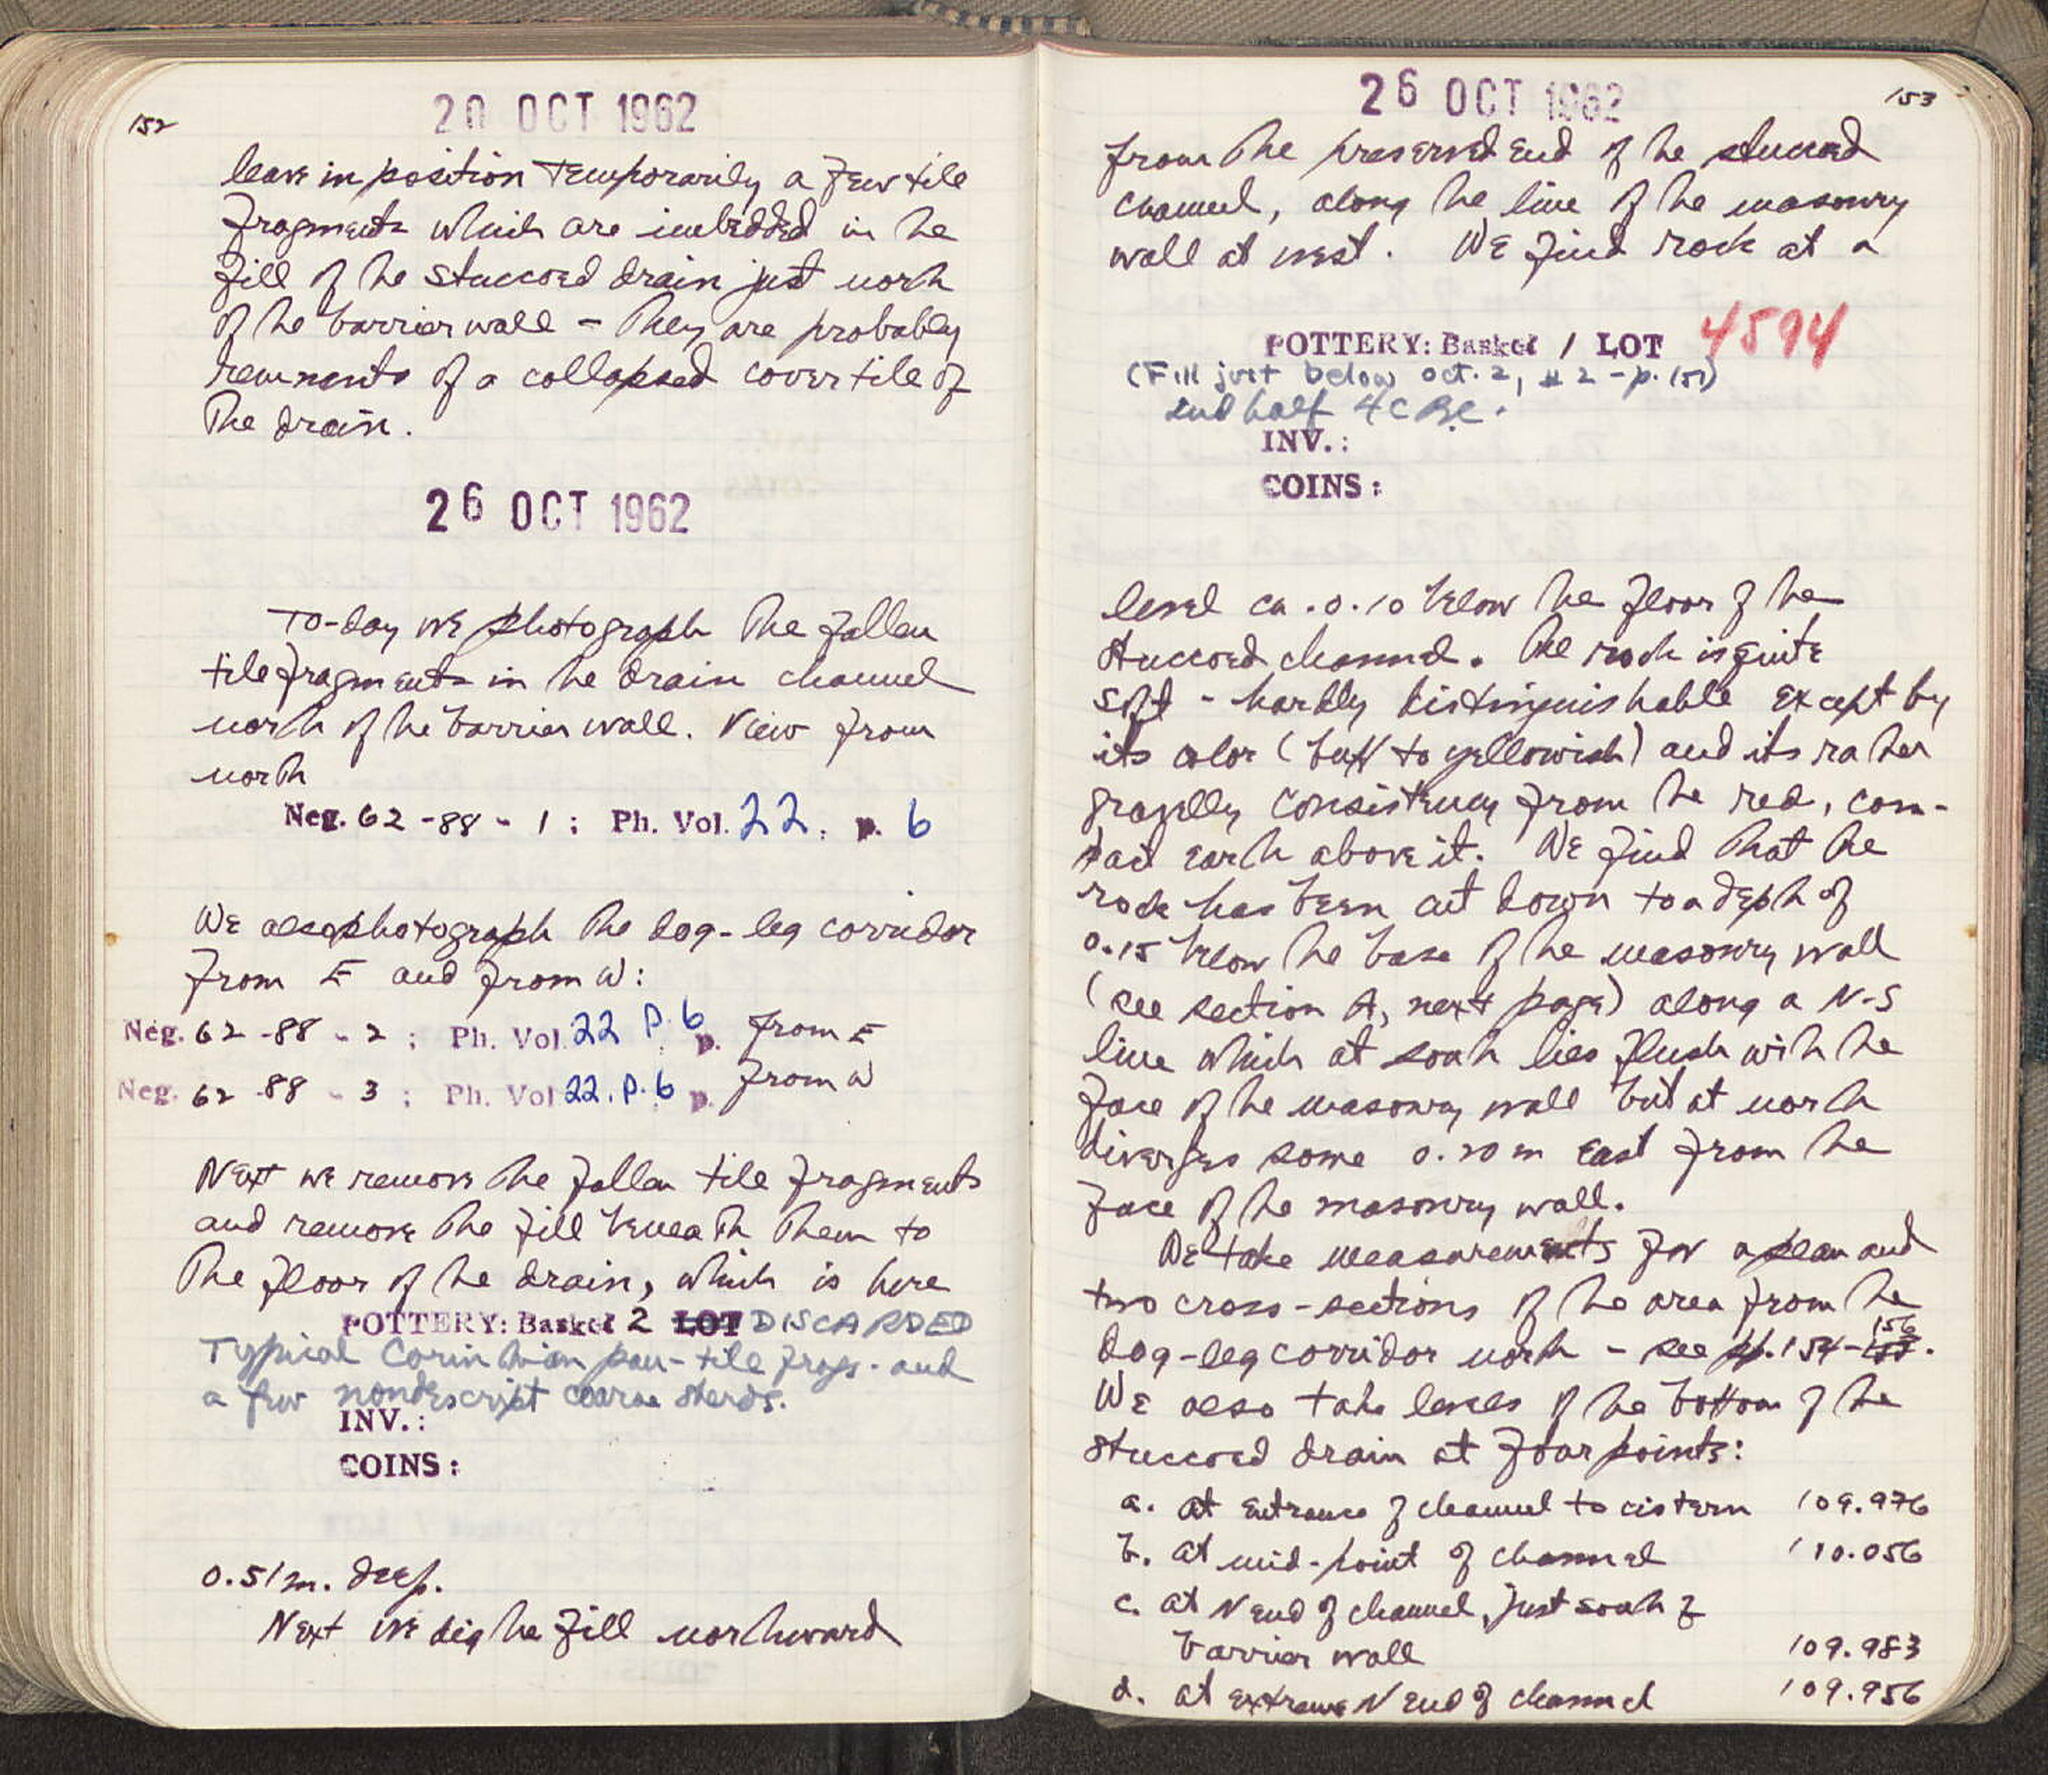 152
20 OCT 1962
leave in position temporarily a few tile
fragments which are imbedded in the
fill of the stuccoed drain just north
of the barrier wall - They are probably
remnants of a collapsed cover tile of
the drain.
26 OCT 1962
To-day we photograph the fallen
tile fragments in the drain channel
north of the barrier wall. View from
north
Neg. 62-88-1; Ph. Vol. 22, p. 6
We also photograph the dog-leg corridor
from E and from W:
Neg. 62-88-2; Ph. Vol. 22 p. 6 p. from E
Neg. 62-88-3; Ph. Vol 22. p. 6 p. from W
Next we remove the fallen tile fragments
and remove the fill beneath them to
the floor of the drain, which is here
POTTERY: Basket 2 LOT DISCARDED
Typical Corinthian pan-tile frags. and
a few nondescript coarse sherds.
INV.:
COINS:
0.51m. deep.
Next we dig the fill northward
153
26 OCT 1962
from the preserved end of the stuccoed
channel, along the line of the masonry
wall at west. We find rock at a
POTTERY: Basket 1 LOT 4594
(Fill just below Oct. 2, #2 - p. 151)
2nd half 4 C B.C.
INV.:
COINS:
level ca. 0.10 below the floor of the
stuccoed channel. The rock is quite
soft - hardly distinguishable except by
its color (buff to yellowish) and its rather
gravelly consistency from the red, com-
pact earth above it. We find that the
rock has been cut down to a depth of
0.15 below the base of the masonry wall
(see section A, next page) along a N-S
line which at south lies flush with the
face of the masonry wall but at north
diverges some 0.20m east from the
face of the masonry wall.
We take measurements for a plan and
two cross-sections of the area from the
dog-leg corridor north - see pp. 154-156.
We also take levels of the bottom of the
stuccoed drain at four points:
a. at entrance of channel to cistern 109.976
b. at mid-point of channel 110.056
c. at N end of channel, just south of
barrier wall 109.983
d. at extreme N end of channel 109.956